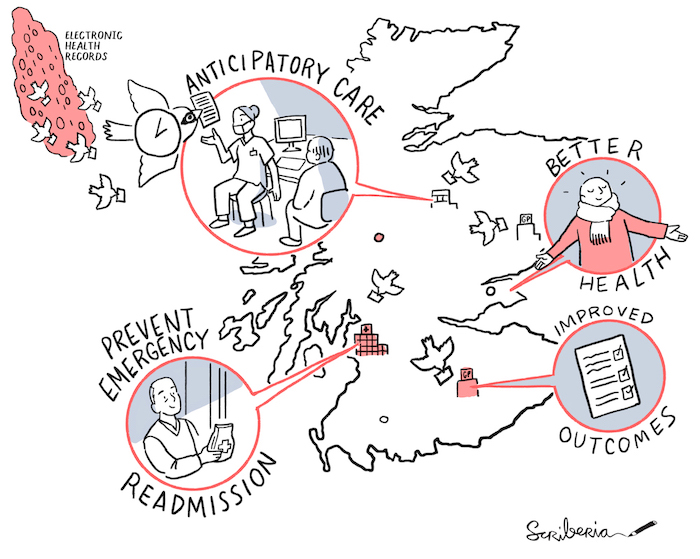 ELECTRONIC
HEALTH
RECORDS
ANTICIPATORY CARE
BETTER
HEALTH
GP
PREVENT
EMERGENCY
READMISSION
GP
IMPROVED
OUTCOMES
Scriberia